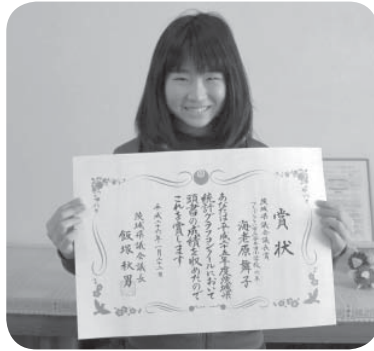 賞状
茨城県議会議長賞
海老原舞子
あなたは平成二十五年度茨城県
統計グラフコンクールにおいて
頭書の成績を収めたので
これを賞します
平成二十六年一月二十二日
茨城県議会議長
飯塚秋男